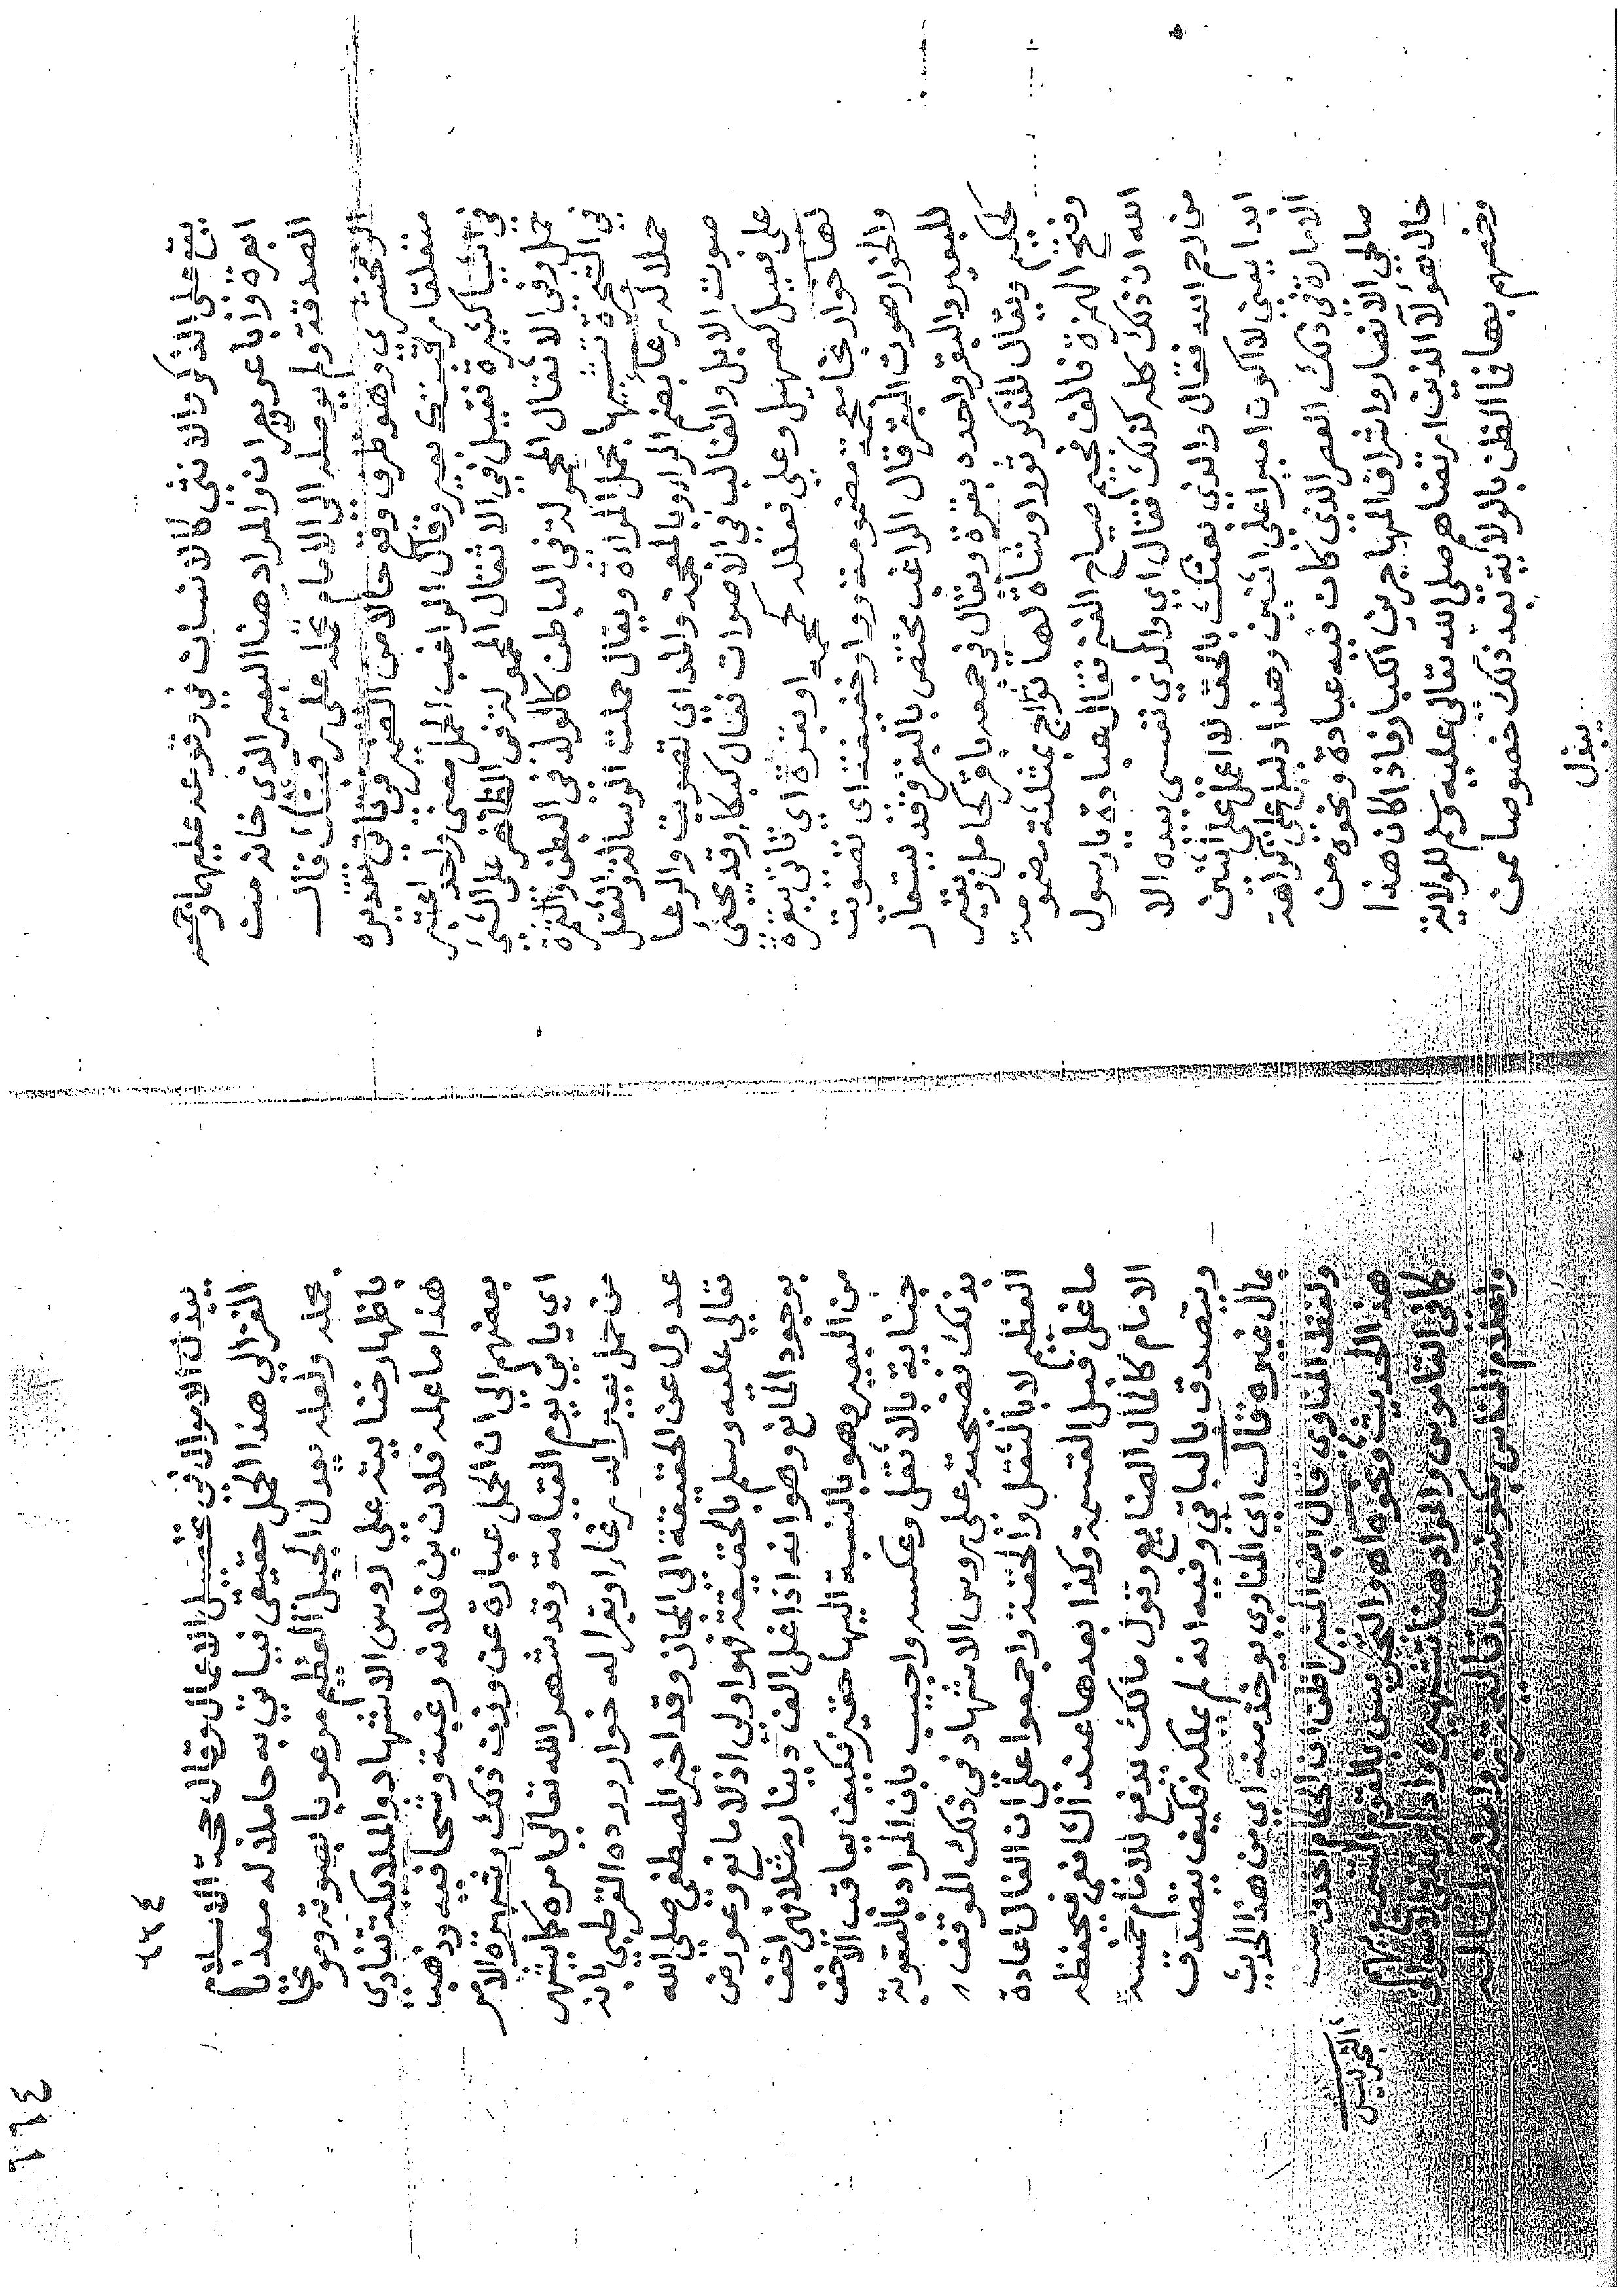 يقع على الذكر والانثى كالانسان في وقوعه عليهما وجمعه
ابعرة واباعر وبعران والمراد هنا البعير الذي خانه من
الصدقة ولم يوصله الى الامام يحمله على رقبته قال
الزمخشري وهو ظرف وقع حالا من الضمير في ياتي تقديره
متعلقا برقبتك بعير وقال الراغب الحمل معنى واحد اعتبر
في اشيا كثيرة فقيل في الاثقال المحمولة في الظاهر على الشي
حمل وفي الاثقال المحمولة في الباطن كالولد في البطن والثمرة
في الشجرة تشبيها بحمل المراة ويقال حملت الرسالة والثقل
حملا له رغا بضم الرا وبالمعجمة والمد اي تصويت والرغا
صوت الابل والغالب في الاصوات فعال كبكا وقد يجئ
على فعيل كصهيل وعلى فعللة كحمحمة او بقرة اي تاتي ببقرة
لها خوار بخا معجمة مضمومة وواو خفيفة اي تصويت
والخوار صوت البقر قال الراغب مختص بالبقر وقد يستعار
للبعير والبقر واحده بقرة ويقال في جمعه باقر كحامل وبقير
كحكيم ويقال للذكر ثور او شاة لها ثواج بمثلثة مضمومة
وفتح الهمزة فالف فجيم صياح الغنم فقال عبادة يا رسول
الله ان ذلك كله كذلك فقال اي والذي نفسي بيده الا
من رحم الله فقال والذي بعثك بالحق لا اعمل على اثنين
ابدا يعني لا اكون اميرا على اثنين وهذا دليل على كراهة
الامارة في ذلك العصر الذي كان فيه عبادة ونحوه من
صالحي الانصار واشراف المهاجرين الكبار فاذا كان هذا
حال هؤلا الذين ارتضاهم صلى الله تعالى عليه وسلم للولاية
وخصهم بها فما الظن بالولاية بعد ذلك خصوصا عن
يبذل
٦٦٤
٦٦٤
يبذل الاموال في تحصيل الاعمال وقال حجة الاسلام
الغزالي هذا الحمل حقيقي فياتي به حاملا له معذبا
بحمله وثقله يعدل الجبل العظيم مرعوبا بصوته وموبخا
باظهار خيانته على روس الاشهاد والملائكة تنادي
هذا ما غله فلان بن فلانه رغبة وشحا فيه وذهب
بعضهم الى ان الحمل عبارة عن وزر ذلك وشهرة الامر
اي ياتي يوم القيامة وقد شهر الله تعالى امره كما يشهر
من حمل بعيرا له رغا او بقرا له خوار ورده القرطبي بانه
عدول عن الحقيقة الى المجاز وقد اخبر المصطفى صلى الله
تعالى عليه وسلم بالحقيقة فهو اولى اذ لا مانع وعورض
بوجود المانع وهو انه اذا غل الف دينار مثلا فهي اخف
من البعير وهو بالنسبة اليها حقير فكيف يعاقب الاخف
جناية بالاثقل وعكسه واجيب بان المراد بالعقوبة
بذلك فضيحته على روس الاشهاد في ذلك الموقف
العظيم لا بالثقل والخفة واجمعوا على ان الغال اعادة
ما غل قبل القسمة وكذا بعدها عند الشافعي فيحفظه
الامام كالمال الضايع وقول مالك يدفع للامام خمسه
ويتصدق بالباقي وفيه انه لم يملكه فكيف يتصدق
بمال غيره قال اي المناوي يوخذ منه اي من هذا الحديث
ولفظ المناوي قال ابن المنير اظن ان الحكام اخذت من
هذا الحديث ونحوه اه والتجريس بالقوم التسميع بهم
كما في القاموس والمراد هنا تشهيره واذا ارتقى لاسوان
واعلام الناس بكونه سارقا ليحترز منه ولفضاله
التجريس